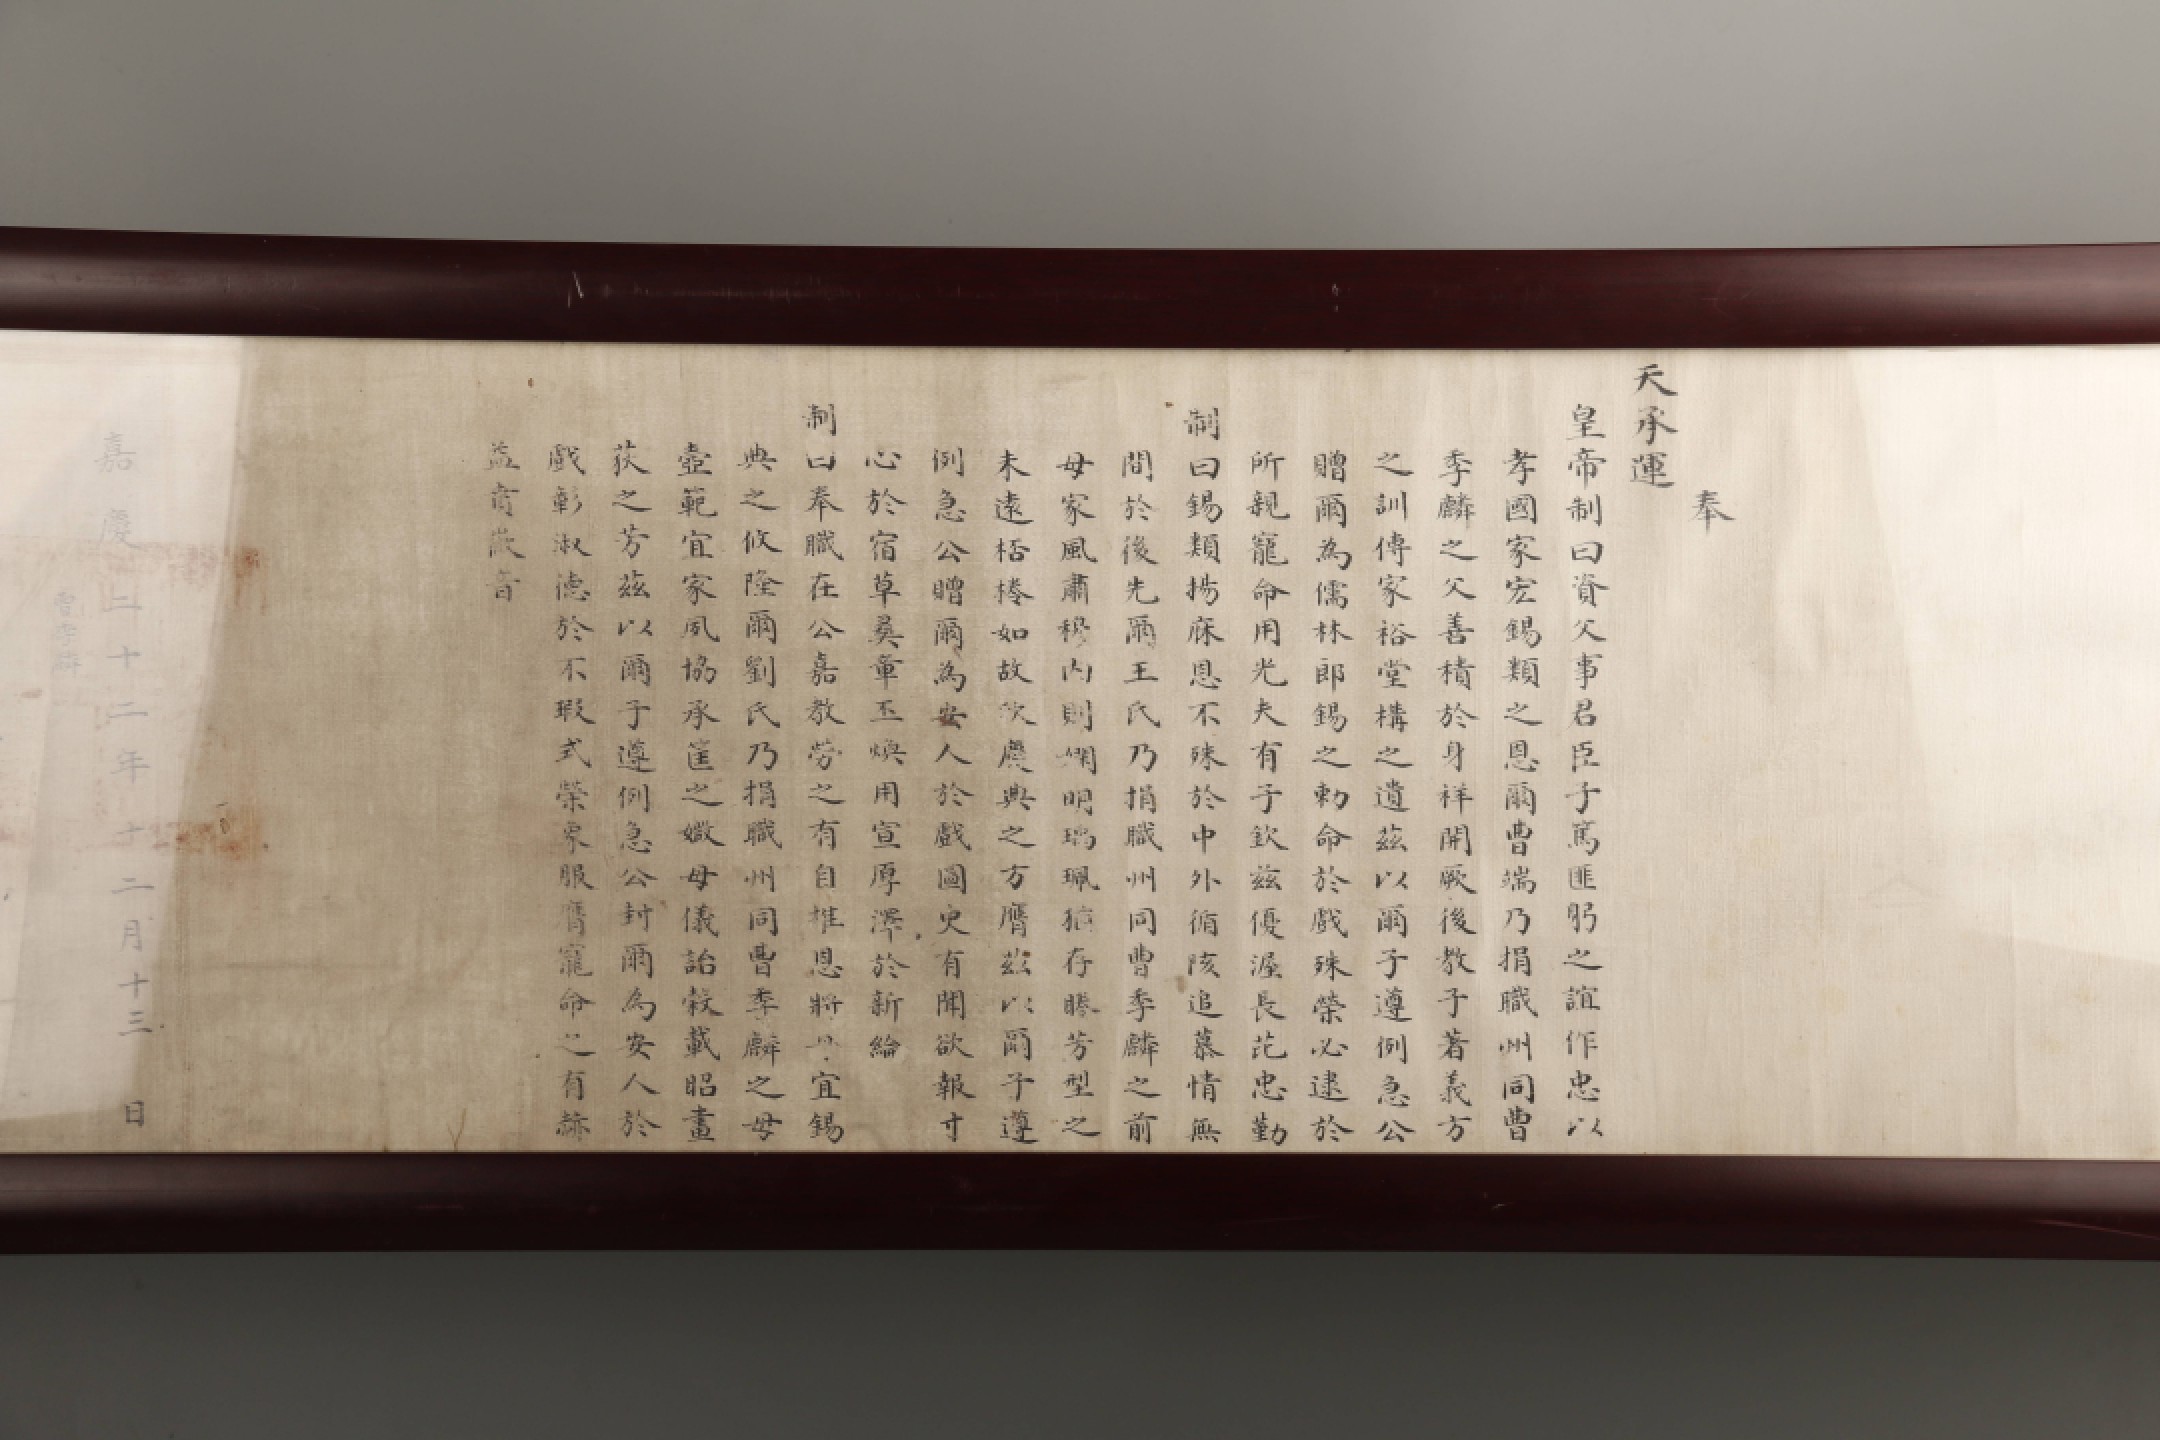 奉
天承運
皇帝制曰資父事君臣子篤匪躬之誼作忠以
孝國家宏錫類之恩爾曹端乃捐職州同曹
季麟之父善積於身祥開厥後教子著義方
之訓傳家裕堂構之遺茲以爾子遵例急公
贈爾為儒林郎錫之勅命於戲殊榮必逮於
所親寵命用光夫有子欽茲優渥長芘忠勤
制曰錫類揚庥恩不殊於中外循陔追慕情無
間於後先爾王氏乃捐職州同曹季麟之前
母家風肅穆內則嫻明瑀珮猶存勝芳型之
未遠桮棬如故欣慶典之方膺茲以爾子遵
例急公贈爾為安人於戲圖史有聞欲報寸
心於宿草彝章丕煥用宣厚澤於新綸
制曰奉職在公嘉教勞之有自推恩將母宜錫
典之攸隆爾劉氏乃捐職州同曹季麟之母
壼範宜家夙協承筐之媺母儀詒穀載昭畫
荻之芳茲以爾子遵例急公封爾為安人於
戲彰淑德於不瑕式榮象服膺寵命之有赫
益賁徽音
嘉慶二十二年十二月十三日
曹季麟